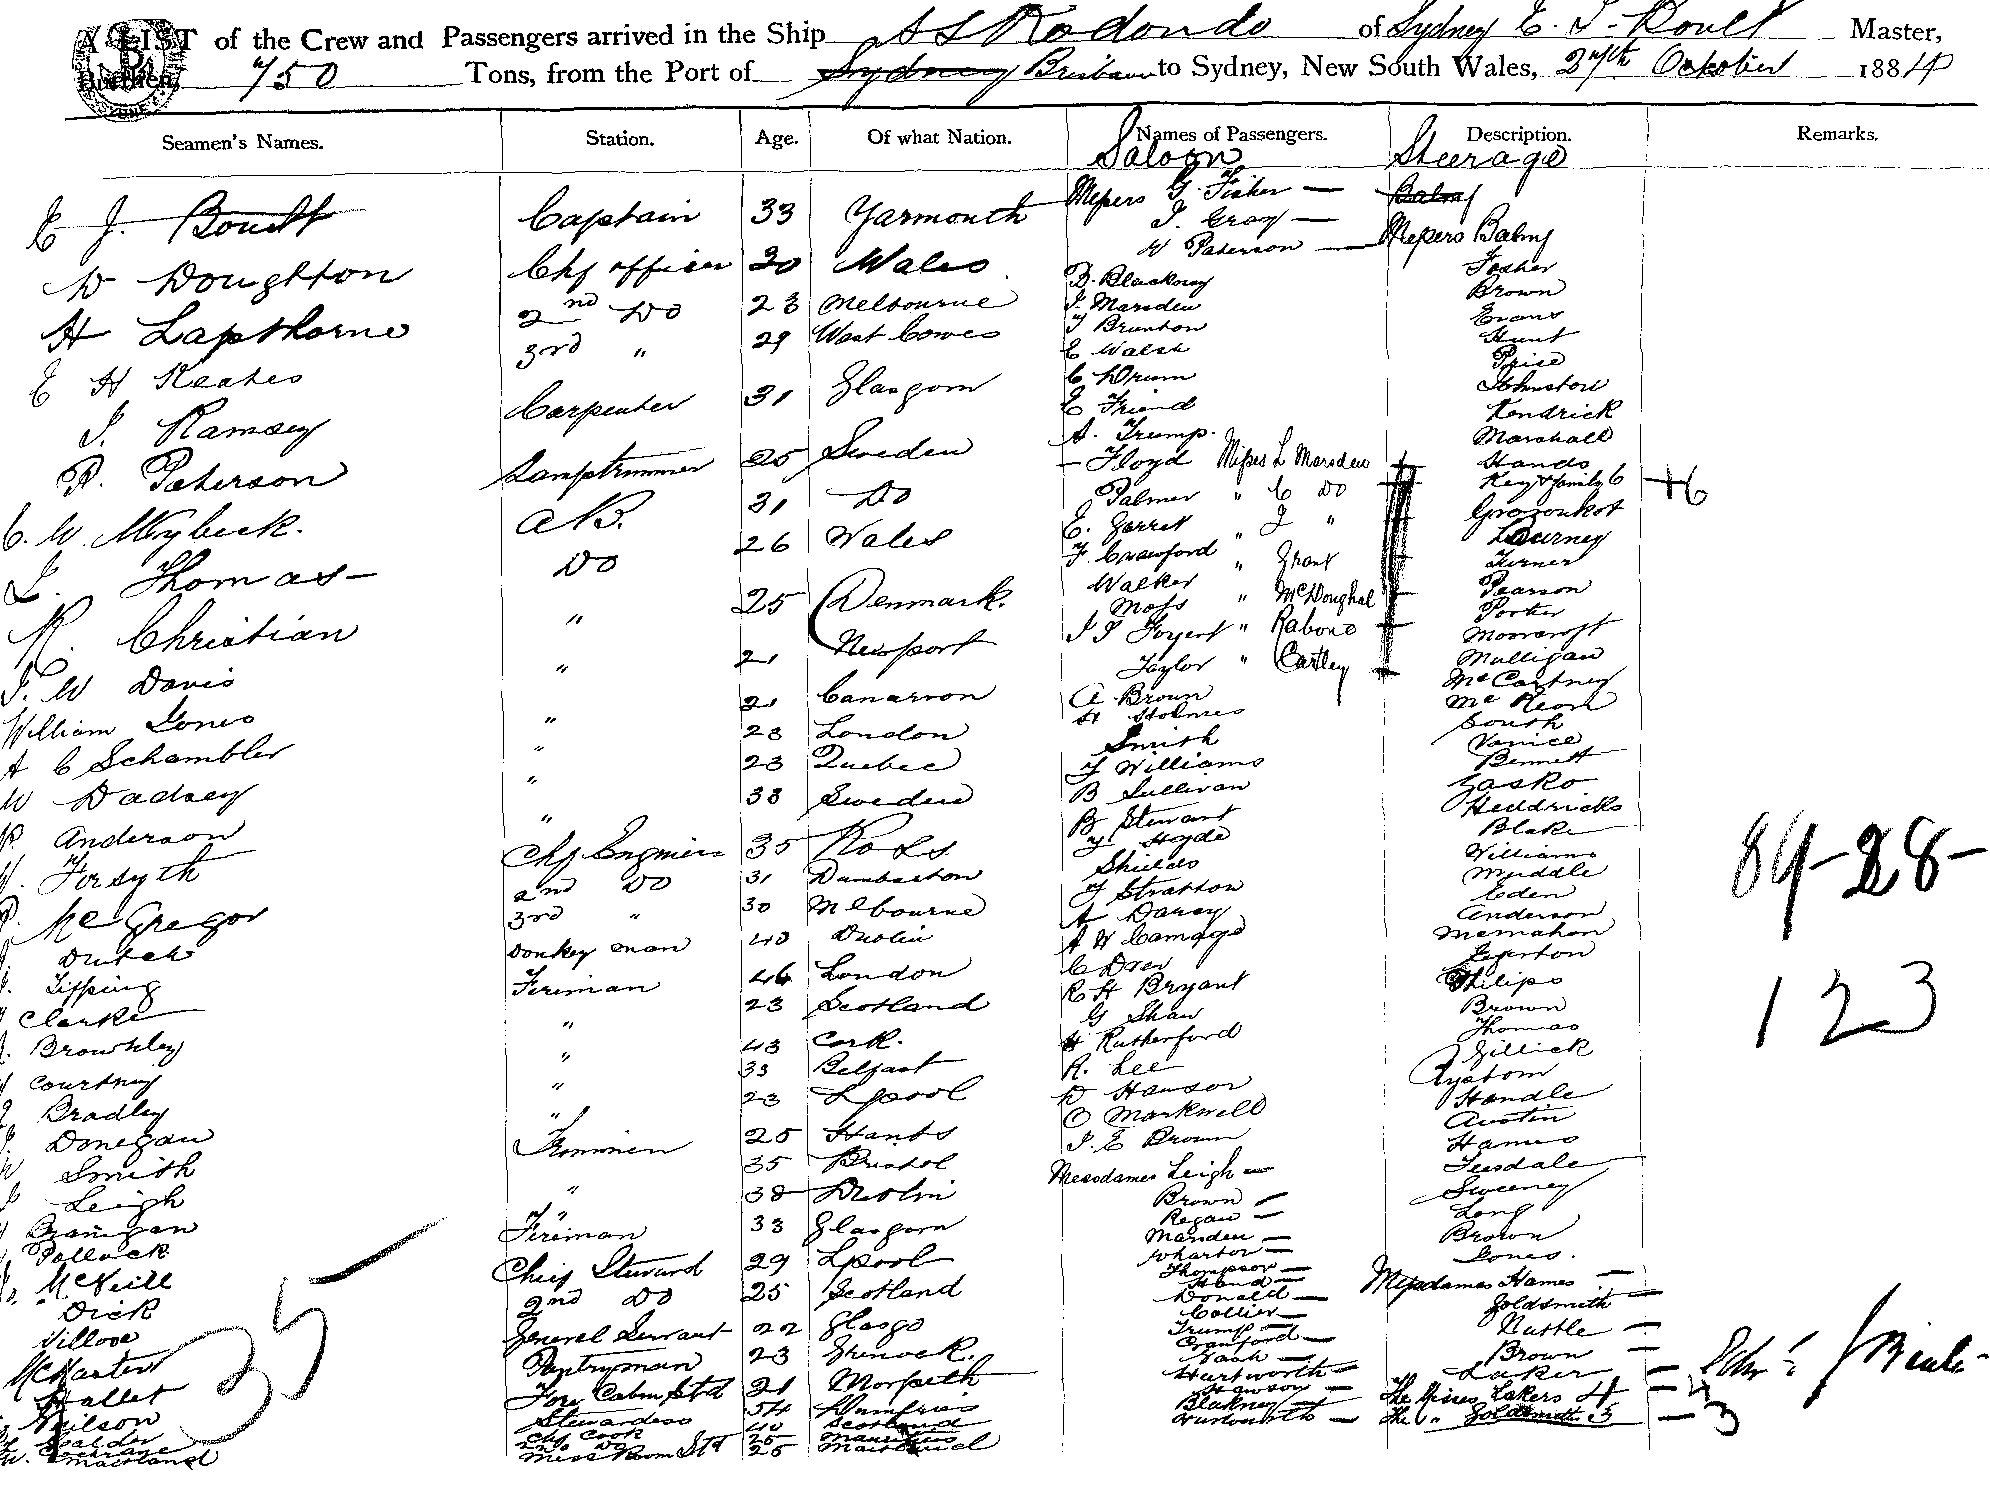 A LIST of the Crew and Passengers arrived in the Ship SS Rodondo of Sydney E. J. Boult Master,
Burthen, 750 Tons, from the Port of Sydney Brisbane to Sydney, New South Wales, 27th October 1884
Seamen's Names. Station. Age. Of what Nation. Names of Passengers. Description. Remarks.
Saloon Steerage
E J. Boult Captain 33 Yarmouth
W Doughton Chf officer 30 Wales
H Lapthorne 2nd Do 23 Melbourne
E H Keates 3rd " 29 West Cowes
J. Ramsey Carpenter 31 Glasgow
P. Paterson Lamptrimmer 25 Sweden
C. W. Meybeck. AB. 31 Do
L. Thomas Do 26 Wales
R. Christian " 25 Denmark.
J. W Davis " 21 Newport
William Jones " 21 Canarvon
A C Schambler " 23 London
W Dadsey " 23 Quebec
P Anderson " 33 Sweden
Forsyth Chf Engineer 35 Ross
McGregor 2nd Do 31 Dumbarton
3rd " 30 Melbourne
Tipping Donkey man 40 Dublin
Clarke Fireman 46 London
" 23 Scotland
Courtney " 43 Cork.
Bradley " 33 Belfast
Donegan " 23 Lpool
Smith Firemen 25 Hants
Leigh 35 Bristol
Branigan " 38 Dublin
Pollock Fireman 33 Glasgow
McNeill Chief Steward 29 Lpool
Dick 2nd Do 25 Scotland
General Servant 22 Glasgo
Pantryman 23 Grenock.
Hallet Fore Cabin Std 21 Morpeth
Neilson Stewardess 54 Dumfries
Chf Cook 40 Scotland
Cochrane 2nd Do 25 Mauritius
Maitland Mess Room Std 25
35
Messrs G. Fisher
J. Gray
W Paterson
D. Blackney
J. Marsden
J Brunton
E Walsh
C Drum
E Friend
A. Trump.
Floyd Misses L Marsden
Palmer " C Do
E. Garret " J "
F Crawford " Grant
Walker
Moss " McDoughal
J J Forgert " Rabone
Taylor " Cartley
A Brown
H Holmes
Smith
J Williams
B Sullivan
B Stewart
J Hoyde
Shields
J Stratton
A Darcy
A W Camage
C Drew
R H Bryant
G Shaw
H Rutherford
R. Lee
D Hawson
O Markwell
J. E Brown
Mesdames Leigh
Brown
Regan
Marsden
Wharton
Thompson
Hand
Donald
Collier
Trump
Crawford
Nash
Hurtworth
Hawson
Blakney
Balmy
Messrs Balmy
Fosher
Brown
Evans
Hunt
Price
Johnston
Kendrick
Marshall
Hands
Key & family 6 +6
Durney
Turner
Pearson
Porter
Moorcroft
Mulligan
McCartney
McKeon
South
Venice
Bennett
Gasko
Heddricks
Blake
Williams
Muddle
Eden
Anderson
McMahon
Egerton
Philips
Brown
Thomas
Gillick
Rystom
Handle
Austin
Hames
Teesdale
Sweeney
Long
Brown
Jones.
Mesdames Hames
Goldsmith
Nuttle
Brown
Laker
The Misses Lakers 4 4
The " Goldsmith 3 3
84-28-
123